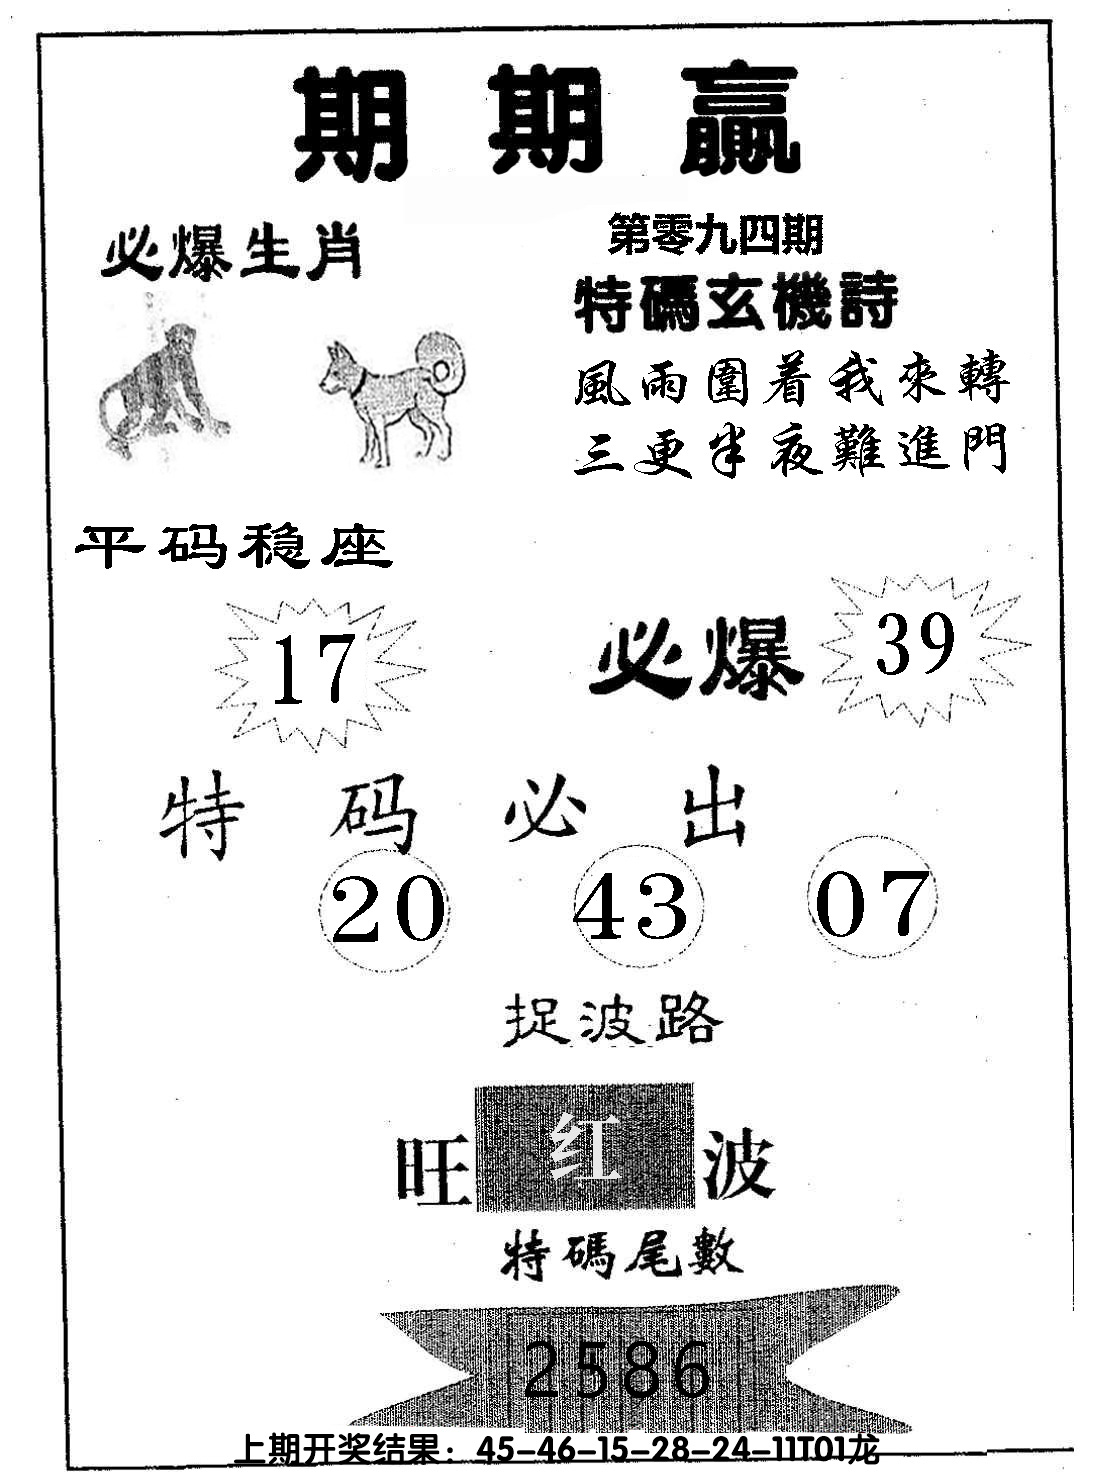 期期贏
必爆生肖
第零九四期
特碼玄機詩
風雨圍着我來轉
三更半夜難進門
平码稳座
17
必爆
39
特码必出
20 43 07
捉波路
旺 红 波
特碼尾數
2586
上期开奖结果：45-46-15-28-24-11T01龙